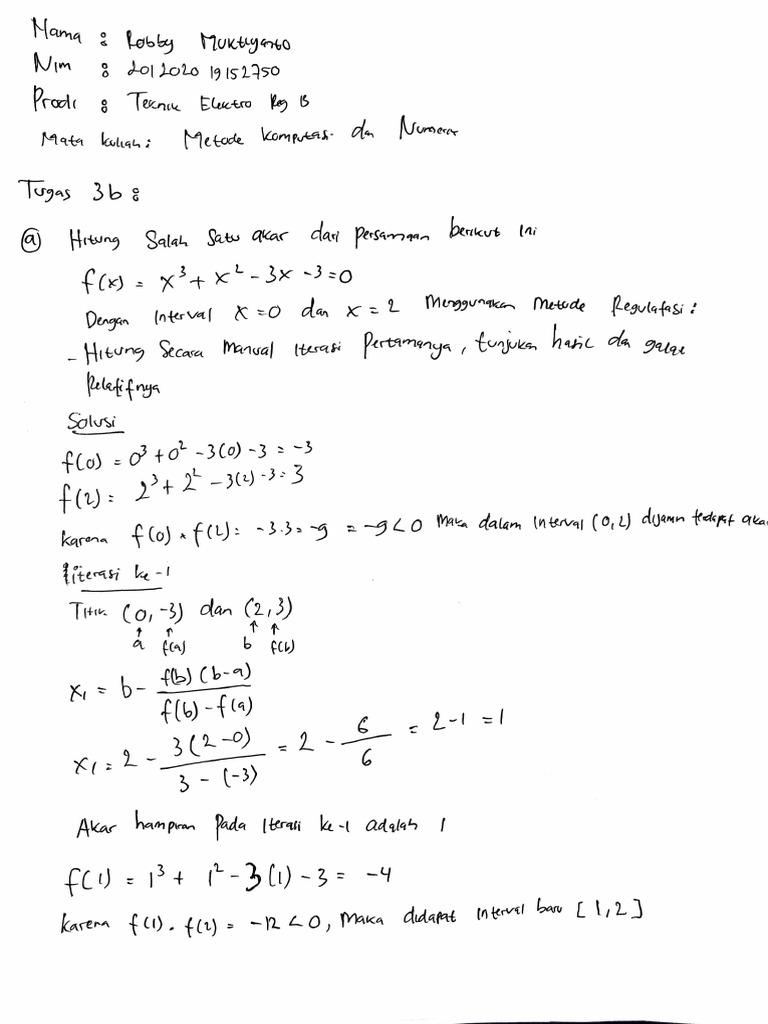 Nama : Robby Muktiyanto
Nim : 20120201915 2750
Prodi : Teknik Elektro Reg B
Mata kuliah : Metode Komputasi dan Numerik
Tugas 3b :
(a) Hitung Salah Satu akar dari Persamaan berikut ini
f(x) = x³ + x² - 3x - 3 = 0
Dengan Interval x = 0 dan x = 2 Menggunakan Metode Regulafasi :
- Hitung Secara Manual Iterasi Pertamanya, tunjukan hasil dan galat
Relatifnya
Solusi
f(0) = 0³ + 0² - 3(0) - 3 = -3
f(2) = 2³ + 2² - 3(2) - 3 = 3
karena f(0) * f(2) = -3.3 = -9 = -9 < 0 Maka dalam Interval (0,2) dijamin terdapat akar
Iterasi ke-1
Titik (0, -3) dan (2, 3)
↑ ↑ ↑ ↑
a f(a) b f(b)
x₁ = b - f(b) (b-a) / f(b) - f(a)
x₁ = 2 - 3(2-0) / 3 - (-3) = 2 - 6 / 6 = 2 - 1 = 1
Akar hampiran Pada Iterasi ke-1 adalah 1
f(1) = 1³ + 1² - 3(1) - 3 = -4
karena f(1) . f(2) = -12 < 0, Maka didapat interval baru [1,2]